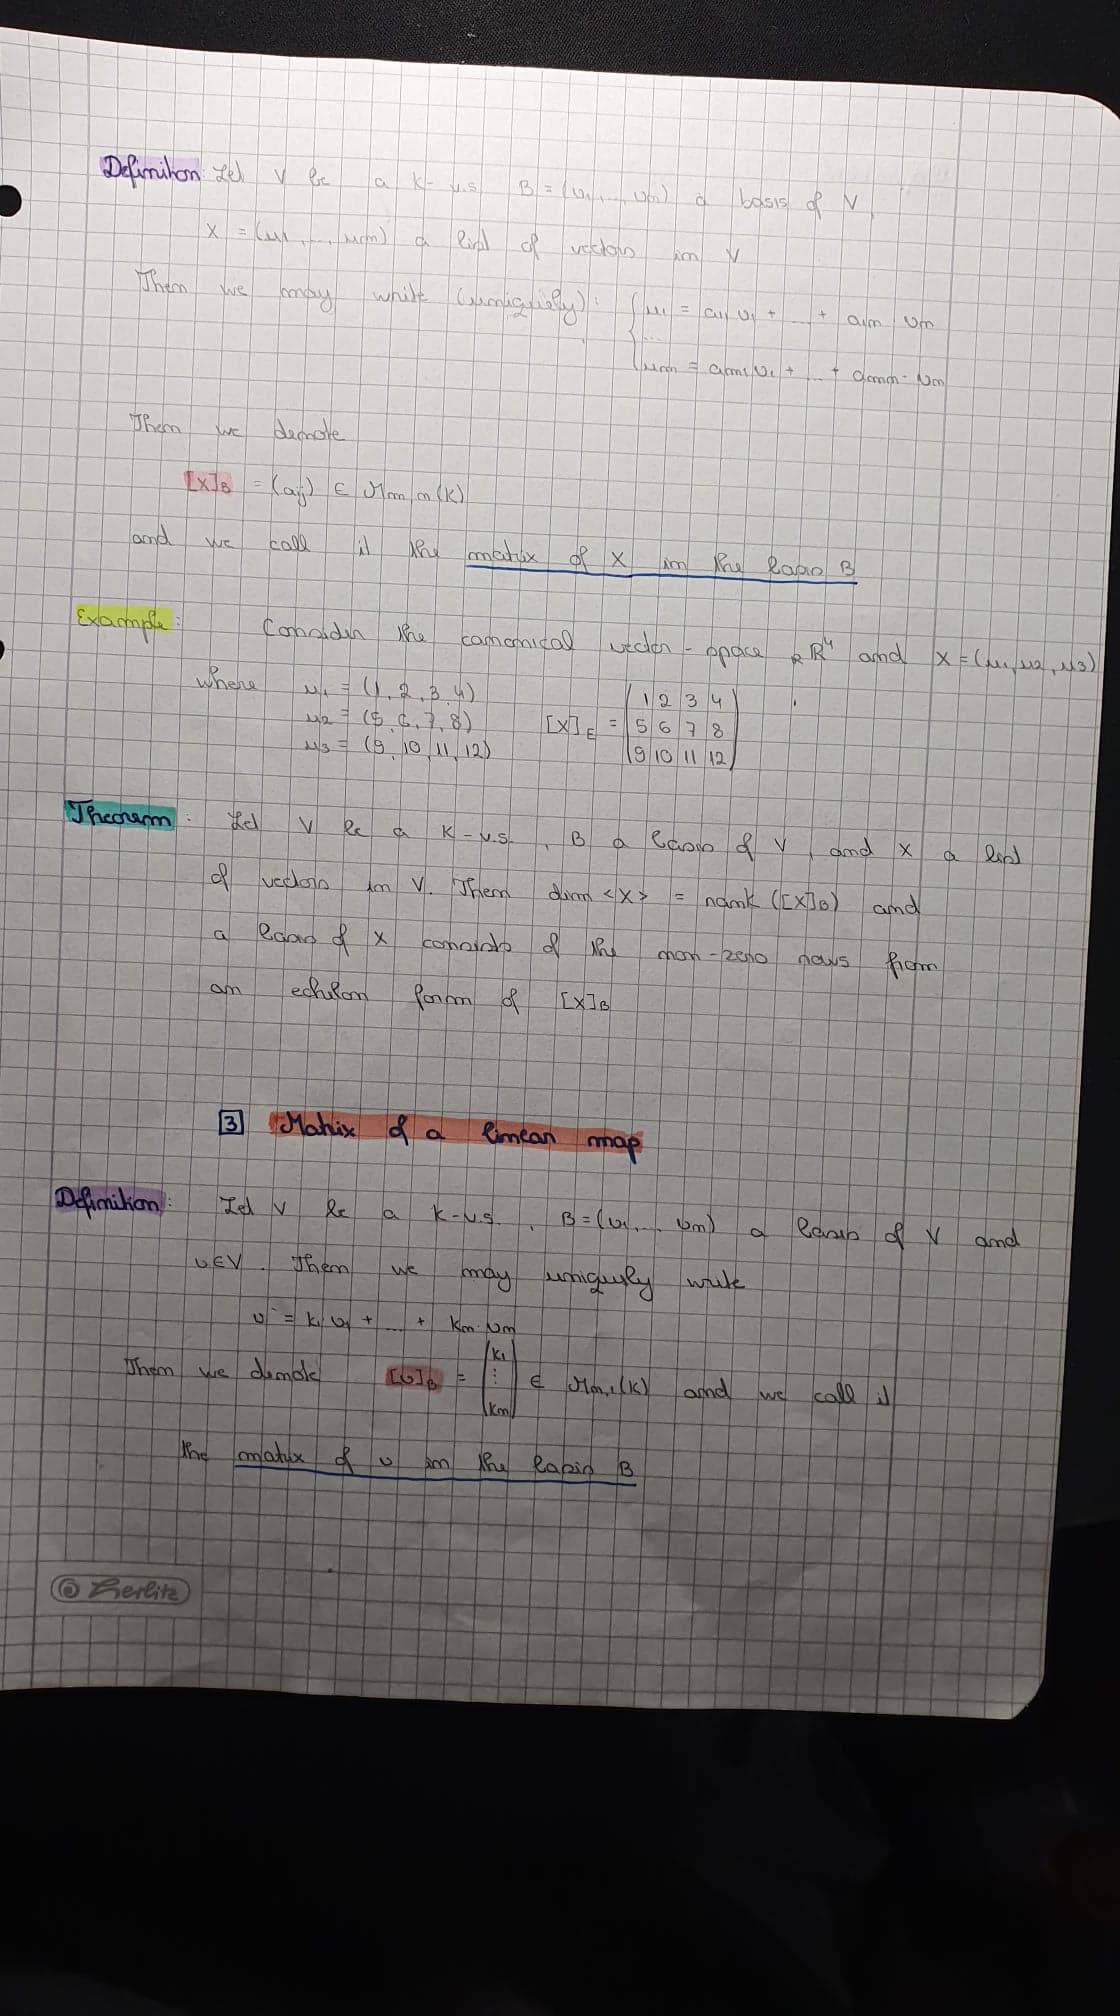 Definition: Let V be a K-v.s. B = (v1, ..., vn) a basis of V,
X = (u1, ..., um) a list of vectors in V
Then we may write (uniquely): { u1 = a11 v1 + ... + a1n vn
...
um = am1 v1 + ... + amn · vn
Then we denote
[X]B = (aij) ∈ Mm,n(K)
and we call it the matrix of X in the basis B
Example: Consider the canonical vector-space RR⁴ and X = (u1, u2, u3)
where u1 = (1, 2, 3, 4)
u2 = (5, 6, 7, 8)
u3 = (9, 10, 11, 12)
[X]E = (1 2 3 4
5 6 7 8
9 10 11 12)
Theorem: Let V be a K-v.s., B a basis of V, and X a list
of vectors in V. Then dim <X> = rank ([X]B) and
a basis of X consists of the non-zero rows from
an echelon form of [X]B
3 Matrix of a linear map
Definition: Let V be a K-v.s., B = (v1, ..., vn) a basis of V and
v∈V. Then we may uniquely write
v = k1 v1 + ... + kn · vn
Then we denote [v]B = (k1 ⋮ kn) ∈ Mn,1(K) and we call it
the matrix of v in the basis B
© Herlitz